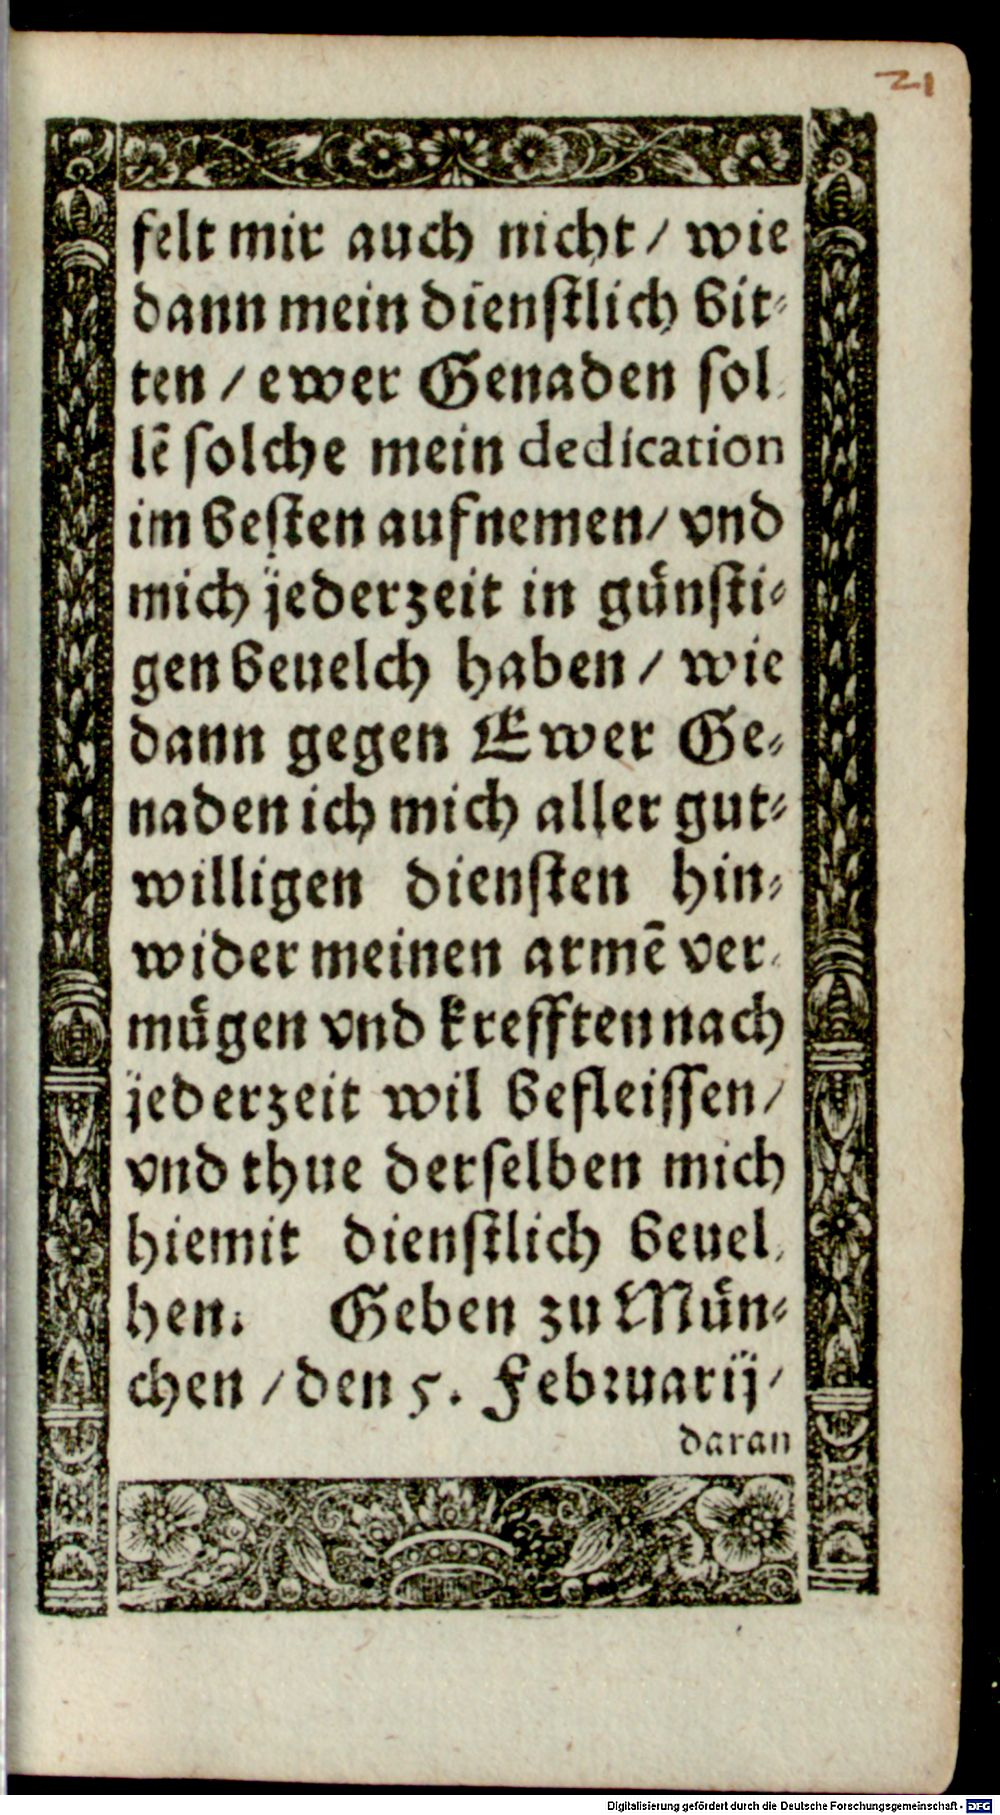 21
felt mir auch nicht / wie
dann mein dienſtlich bit⸗
ten / ewer Genaden ſol⸗
lē ſolche mein dedication
im beſten aufnemen / vnd
mich jederzeit in guͤnſti⸗
gen beuelch haben / wie
dann gegen Ewer Ge⸗
naden ich mich aller gut⸗
willigen dienſten hin⸗
wider meinen armē ver⸗
muͤgen vnd krefften nach
jederzeit wil befleiſſen /
vnd thue derſelben mich
hiemit dienſtlich beuel⸗
hen. Geben zu Muͤn⸗
chen / den 5. Februarij /
daran
Digitalisierung gefördert durch die Deutsche Forschungsgemeinschaft - DFG